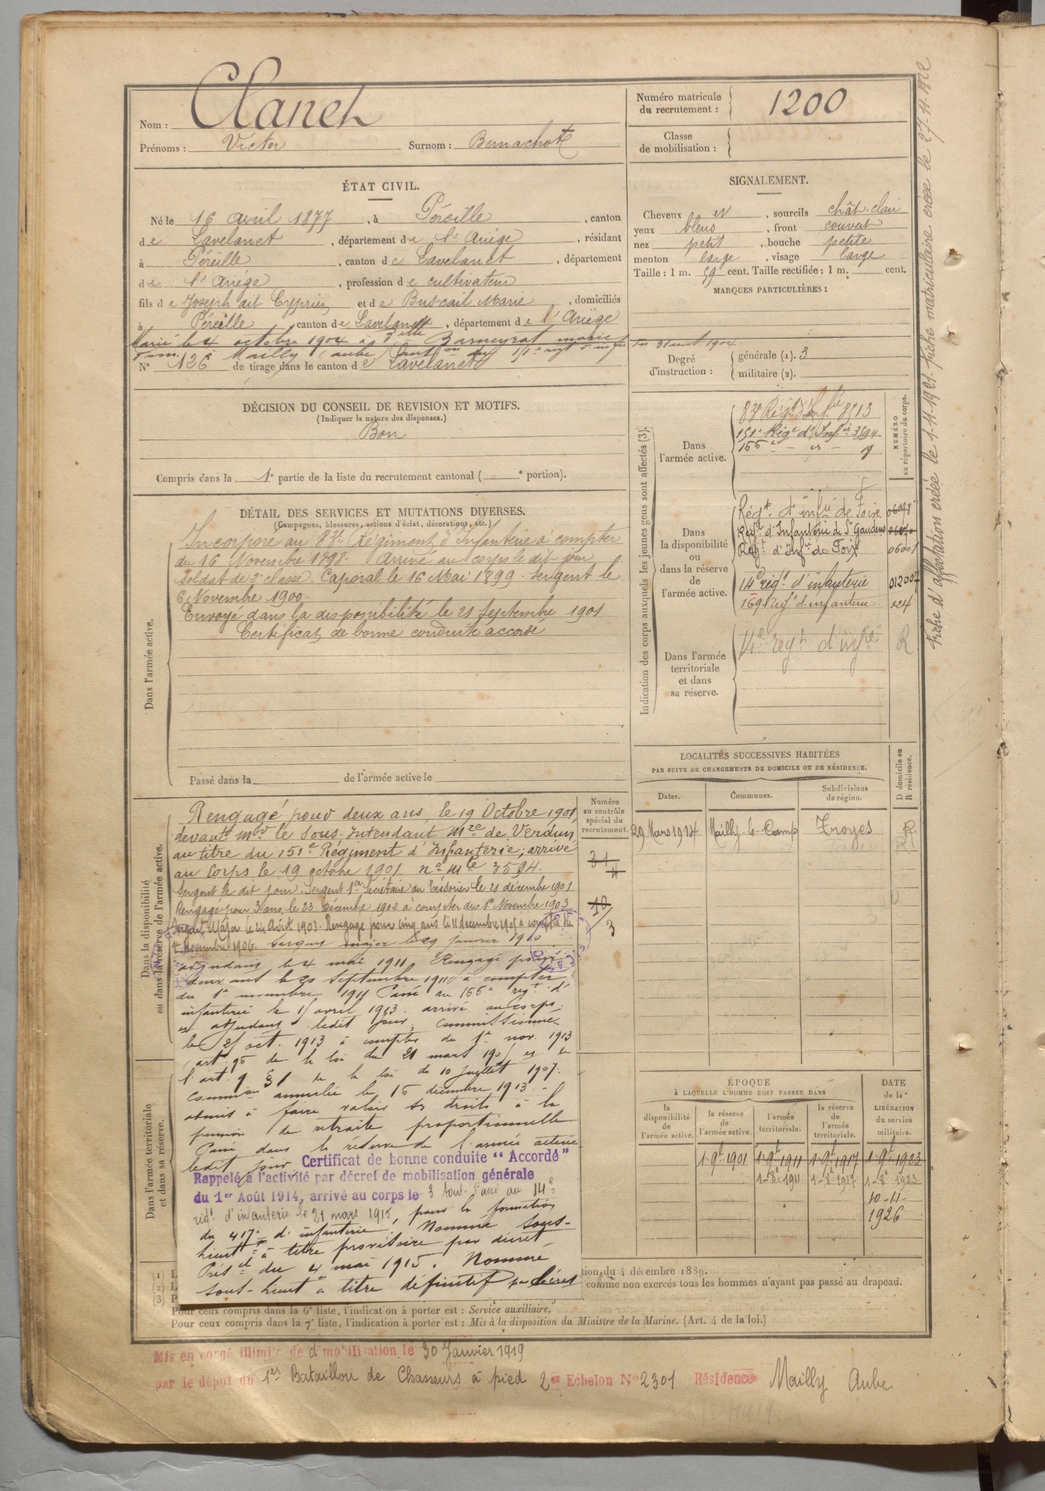 Nom : Clanet
Prénoms : Victor Surnom : Bernachot
Numéro matricule du recrutement : 1200
Classe de mobilisation :
ÉTAT CIVIL.
Né le 16 avril 1877, à Péreille, canton
de Lavelanet, département de l'Ariége, résidant
à Péreille, canton de Lavelanet, département
de l'Ariége, profession de cultivateur
fils de Joseph dit Crépries et de Buscail Marie, domiciliés
à Péreille, canton de Lavelanet, département de l'Ariége
Marié le 4 octobre 1904 à Delle Barneyrat Marie
à Mailly (Aube)
N° 126 de tirage dans le canton de Lavelanet
SIGNALEMENT.
Cheveux et sourcils chât. clair
yeux bleus, front couvert
nez petit, bouche petite
menton large, visage large
Taille : 1 m. 59 cent. Taille rectifiée : 1 m. cent.
MARQUES PARTICULIÈRES :
Degré d'instruction : générale (1). 3
militaire (2).
DÉCISION DU CONSEIL DE REVISION ET MOTIFS.
(Indiquer la nature des dispenses.)
Bon
Compris dans la 1e partie de la liste du recrutement cantonal ( e portion).
DÉTAIL DES SERVICES ET MUTATIONS DIVERSES.
(Campagnes, blessures, actions d'éclat, décorations, etc.)
Dans l'armée active.
Incorporé au 83e Régiment d'Infanterie à compter
du 16 Novembre 1898. Arrivé au corps le dit jour
Soldat de 2e classe. Caporal le 16 Mai 1899 - Sergent le
6 Novembre 1900.
Envoyé dans la disponibilité le 21 Septembre 1901
Certificat de bonne conduite accordé
Passé dans la de l'armée active le
Indication des corps auxquels les jeunes gens sont affectés (3).
NUMÉRO au répertoire du corps.
Dans l'armée active.
83e Régt d'Inf.ie 8513
151e Régt d'Infie 3594
155e
Dans la disponibilité ou dans la réserve de l'armée active.
Régt d'infie de Foix
Régt d'Infanterie de St Gaudens
Régt d'Infie de Foix
14e régt d'infanterie
169e Régt d'infanterie
Dans l'armée territoriale et dans sa réserve.
14e regt d'infie R
LOCALITÉS SUCCESSIVES HABITÉES
PAR SUITE DE CHANGEMENTS DE DOMICILE OU DE RÉSIDENCE.
Dates. Communes. Subdivisions de région. D domicile ou R résidence.
29 Mars 1914 Mailly-le-Camp Troyes R
Dans la disponibilité ou dans la réserve de l'armée active.
Numéro au contrôle spécial du recrutement.
Rengagé pour deux ans, le 19 Octobre 1901,
devant Mr le Sous-Intendant Mre de Verdun
au titre du 151e Régiment d'Infanterie; arrivé
au corps le 19 octobre 1901 no mle 3594.
Sergent le dit jour. Sergent 1er Secrétaire du Trésorier le 21 décembre 1901
Rengagé pour 3 ans, le 23 Décembre 1902 à compter du 1er Novembre 1903
Sergent Major le 24 Août 1903. Rengagé pour cinq ans le 11 décembre 1905 à compter du
1er novembre 1906. Sergent major le 29 janvier 1910
adjudant le 4 mai 1911. Rengagé pour
deux ans le 20 septembre 1911 à compter
du 1er novembre 1911 Passé au 155e regt d'
infanterie le 15 avril 1913 arrivé au corps
et adjudant ledit jour, commissionné
le 21 oct. 1913 à compter du 1er nov. 1913
(art. 95 de la loi du 21 mars 1905 et de
l'art. 9 § 1 de la loi du 10 juillet 1907.
Common annulée le 16 décembre 1913.
admis à faire valoir ses droits à la
pension de retraite proportionnelle
Passé dans la réserve de l'armée active
ledit jour Certificat de bonne conduite "Accordé"
Rappelé à l'activité par décret de mobilisation générale
du 1er Août 1914, arrivé au corps le 3 Août. Passé au 14e
régt d'infanterie le 21 mars 1915, pour la formation
du 417e d'infanterie. Nommé sous-
lieutt à titre provisoire par décret
Présel du 4 mai 1915. Nommé
sous-lieut à titre définitif par décret
Dans l'armée territoriale et dans sa réserve.
ÉPOQUE
À LAQUELLE L'HOMME DOIT PASSER DANS
la disponibilité de l'armée active. la réserve de l'armée active. l'armée territoriale. la réserve de l'armée territoriale. DATE de la LIBÉRATION du service militaire.
1-9-1901 1-8t-1911 1-9t-1917 1-9t-1923
10-11-1926
tion du 4 décembre 1889.
comme non exercés tous les hommes n'ayant pas passé au drapeau.
Pour ceux compris dans la 6e liste, l'indication à porter est : Service auxiliaire.
Pour ceux compris dans la 7e liste, l'indication à porter est : Mis à la disposition du Ministre de la Marine. (Art. 4 de la loi.)
Mis en congé illimité de démobilisation le 30 Janvier 1919
par le dépôt du 1er Bataillon de Chasseurs à pied 2er Echelon No 2301 Résidence Mailly Aube
fiche d'affectation créée le 1-11-1921 fiche matriculaire créée le 27-11-1922